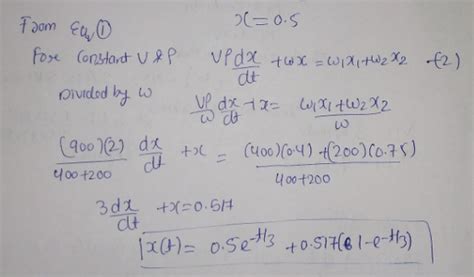 From Eq ① x = 0.5
For Constant V & P VP dx/dt + ωx = ω₁x₁ + ω₂x₂ -(2)
Divided by ω VP/ω dx/dt + x = (ω₁x₁ + ω₂x₂)/ω
(900)(2)/(400+200) dx/dt + x = ((400)(0.4) + (200)(0.75))/(400+200)
3dx/dt + x = 0.517
x(t) = 0.5e^-t/3 + 0.517(1-e^-t/3)